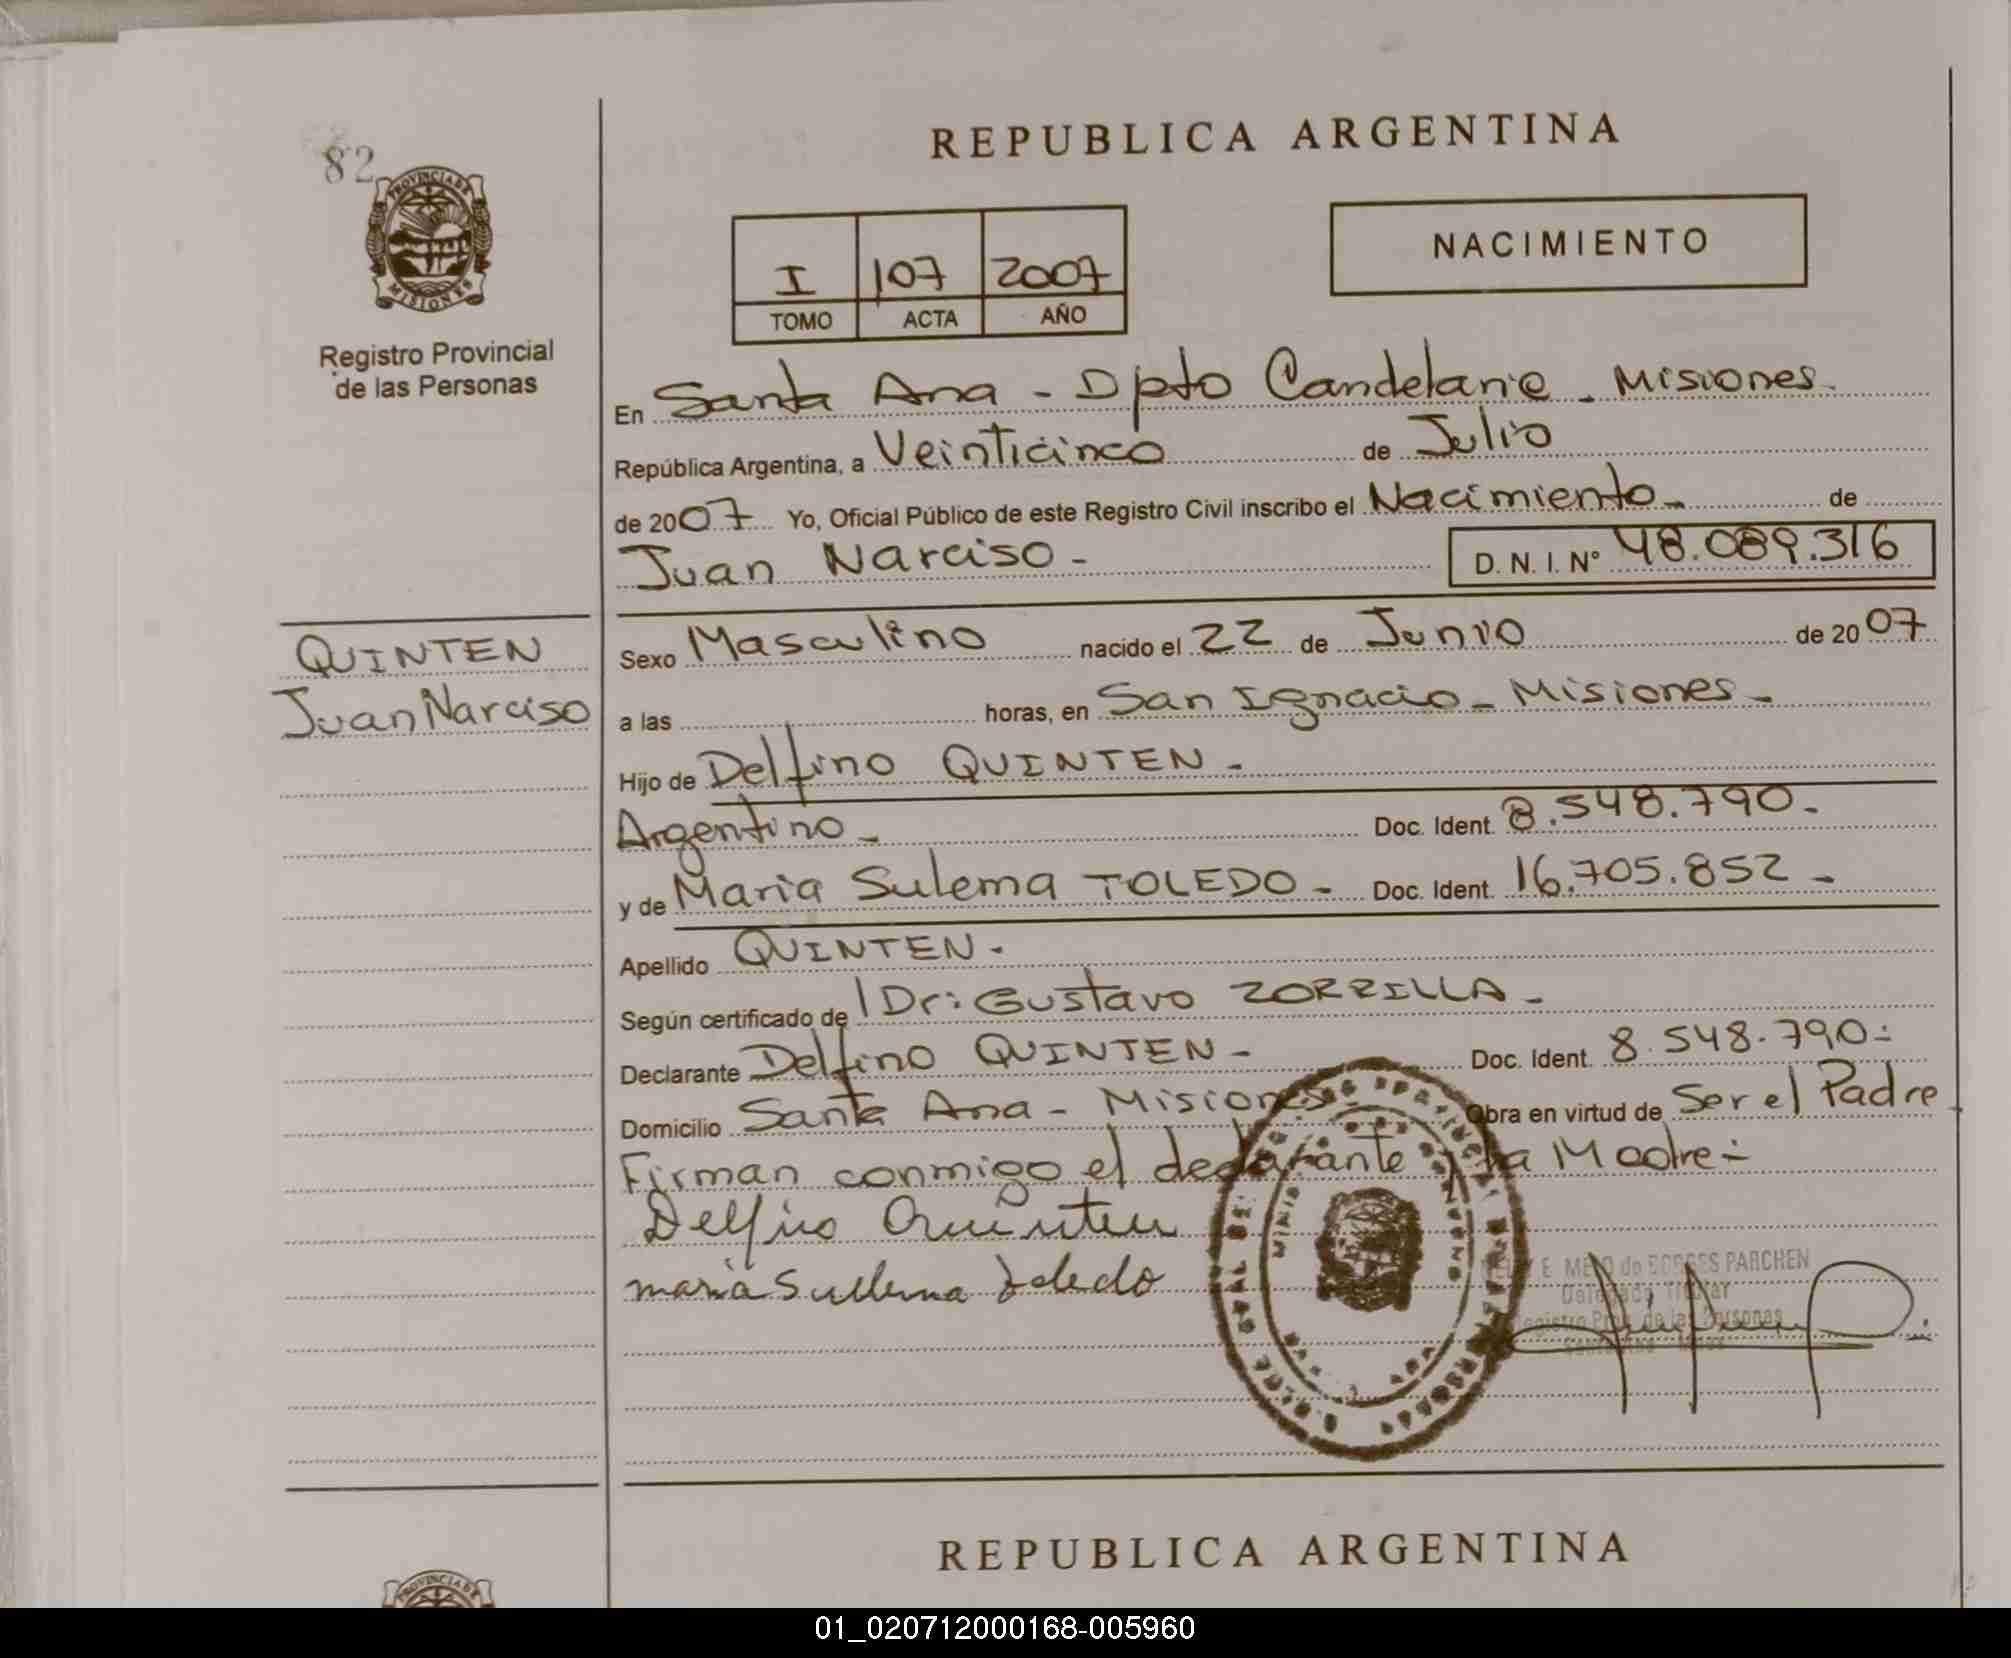 82
PROVINCIA DE
MISIONES
Registro Provincial
de las Personas
REPUBLICA ARGENTINA
I 107 2007
TOMO ACTA AÑO
NACIMIENTO
En Santa Ana - Dpto Candelaria - Misiones.
República Argentina, a Veinticinco de Julio
de 2007 Yo, Oficial Público de este Registro Civil inscribo el Nacimiento - de
Juan Narciso - D. N. I. Nº 48.089.316
QUINTEN
Juan Narciso
Sexo Masculino nacido el 22 de Junio de 2007
a las horas, en San Ignacio - Misiones -
Hijo de Delfino QUINTEN -
Argentino - Doc. Ident. 8.548.790.
y de Maria Sulema TOLEDO - Doc. Ident. 16.705.852 -
Apellido QUINTEN -
Según certificado de Dr: Gustavo ZORRILLA -
Declarante Delfino QUINTEN - Doc. Ident. 8.548.790:
Domicilio Santa Ana - Misiones - Obra en virtud de Ser el Padre
Firman conmigo el declarante y la Madre:
Delfino Quinten
maria Sullema toledo
E. MELO de BORGES PARCHEN
Delegada Titular
Registro Prov. de las Personas
REPUBLICA ARGENTINA
PROVINCIA DE
01_020712000168-005960